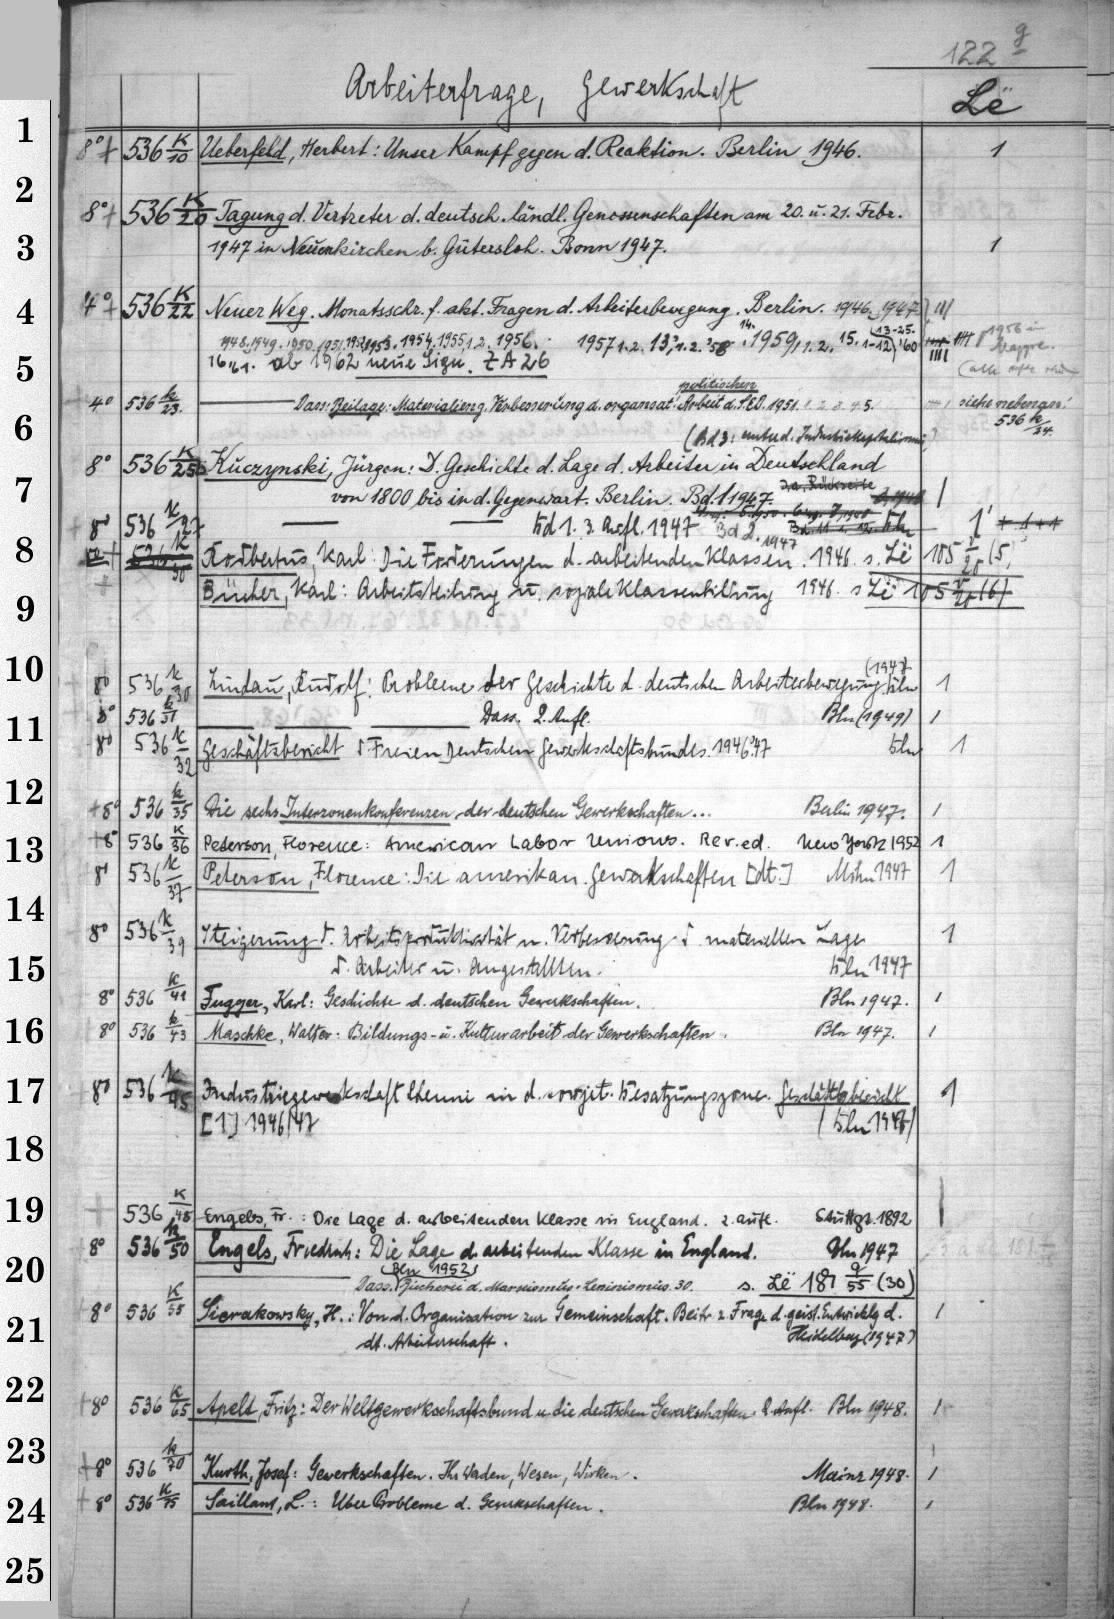 122 g
Arbeiterfrage, Gewerkschaft Lë
1
8° + 536 K/10 Ueberfeld, Herbert: Unser Kampf gegen d. Reaktion. Berlin 1946. 1
2
8° + 536 K/20 Tagung d. Vertreter d. deutsch. ländl. Genossenschaften am 20. u. 21. Febr.
3
1947 in Neuenkirchen b. Gütersloh. Bonn 1947. 1
4
4° + 536 K/22 Neuer Weg. Monatsschr. f. akt. Fragen d. Arbeiterbewegung. Berlin. 1946, 1947
1948, 1949, 1950, 1951, 1952, 1953, 1954, 1955, 1.2., 1956. 1957 1.2. 13, 1.2. '58 14. 1959, 1.2., 15. 1-12, '60 13-25. 1956 in Mappe.
16, 61. ab 1962 neue Sign. ZA 26
5
4° 536 K/23. Dass: Beilage: Materialien z. Verbesserung d. organisat. politischen Arbeit d. SED. 1951. 1. 2. 3. 4. 5. siehe nebenan! 536 K/34.
6
(Bd 3: unter d. Industriekapitalismus)
8° 536 K/25 Kuczynski, Jürgen: D. Geschichte d. Lage d. Arbeiter in Deutschland
7
von 1800 bis in d. Gegenwart. Berlin. Bd. 1 1947. s.a. Rückseite 1
8° 536 K/27 Bd 1. 3. Aufl. 1947 Bd 2. 1947 Bln 1
8
Rodbertus, Karl: Die Forderungen d. arbeitenden Klassen. 1946. s. Lë 105 r/20 (5)
9
Bücher, Karl: Arbeitsteilung u. soziale Klassenbildung 1946. s Lë 105 r/20 (6)
10
8° 536 K/30 Lindau, Rudolf: Probleme der Geschichte d. deutschen Arbeiterbewegung. Bln (1947) 1
8° 536 K/31 Dass. 2. Aufl. Bln (1949) 1
11
8° 536 K/32 Geschäftsbericht d Freien Deutschen Gewerkschaftsbundes. 1946. 47 Bln 1
12
+ 8° 536 K/35 Die sechs Interzonenkonferenzen der deutschen Gewerkschaften... Berlin 1947. 1
13
+ 8° 536 K/36 Peterson, Florence: American Labor Unions. Rev. ed. New York 1952 1
8° 536 K/37 Peterson, Florence: Die amerikan. Gewerkschaften [dt.] Mchn 1947 1
14
8° 536 K/39 Steigerung d. Arbeitsproduktivität u. Verbesserung d materiellen Lage 1
15
d. Arbeiter u. Angestellten. Bln 1947
8° 536 K/41 Fugger, Karl: Geschichte d. deutschen Gewerkschaften. Bln 1947. 1
16
8° 536 K/43 Maschke, Walter: Bildungs- u. Kulturarbeit der Gewerkschaften. Bln 1947. 1
17
8° 536 K/45 Industriegewerkschaft Chemie in d. sowjet. Besatzungszone. Geschäftsbericht 1
[1] 1946/47 (Bln 1948)
18
19
536 K/48 Engels, Fr.: Die Lage d. arbeitenden Klasse in England. 2. Aufl. Stuttgt. 1892
8° 536 K/50 Engels, Friedrich: Die Lage d. arbeitenden Klasse in England. Bln 1947
20
Dass. (Bln 1952) Bücherei d. Marxismus-Leninismus. 30. s. Lë 181 9/55 (30)
8° 536 K/55 Sierakowsky, H.: Von d. Organisation zur Gemeinschaft. Beitr. z. Frage d. geist. Entwicklg d. 1
21
dt. Arbeiterschaft. Heidelberg (1947)
22
+ 8° 536 K/65 Apelt, Fritz: Der Weltgewerkschaftsbund u. die deutschen Gewerkschaften. 2. Aufl. Bln 1948. 1
23
+ 8° 536 K/70 Kurth, Josef: Gewerkschaften. Ihr Werden, Wesen, Wirken. Mainz 1948. 1
24
+ 8° 536 K/75 Saillant, L.: Über Probleme d. Gewerkschaften. Bln 1948. 1
25